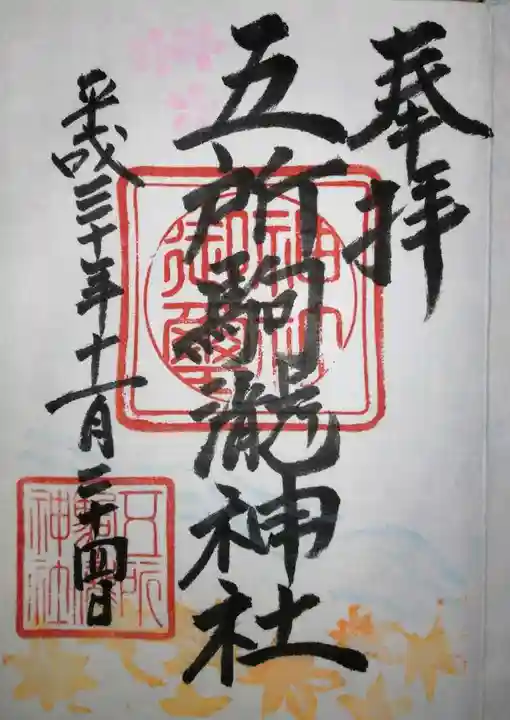 奉拝
五所駒瀧神社
平成三十年十一月二十四日
神社御璽
五所駒瀧神社